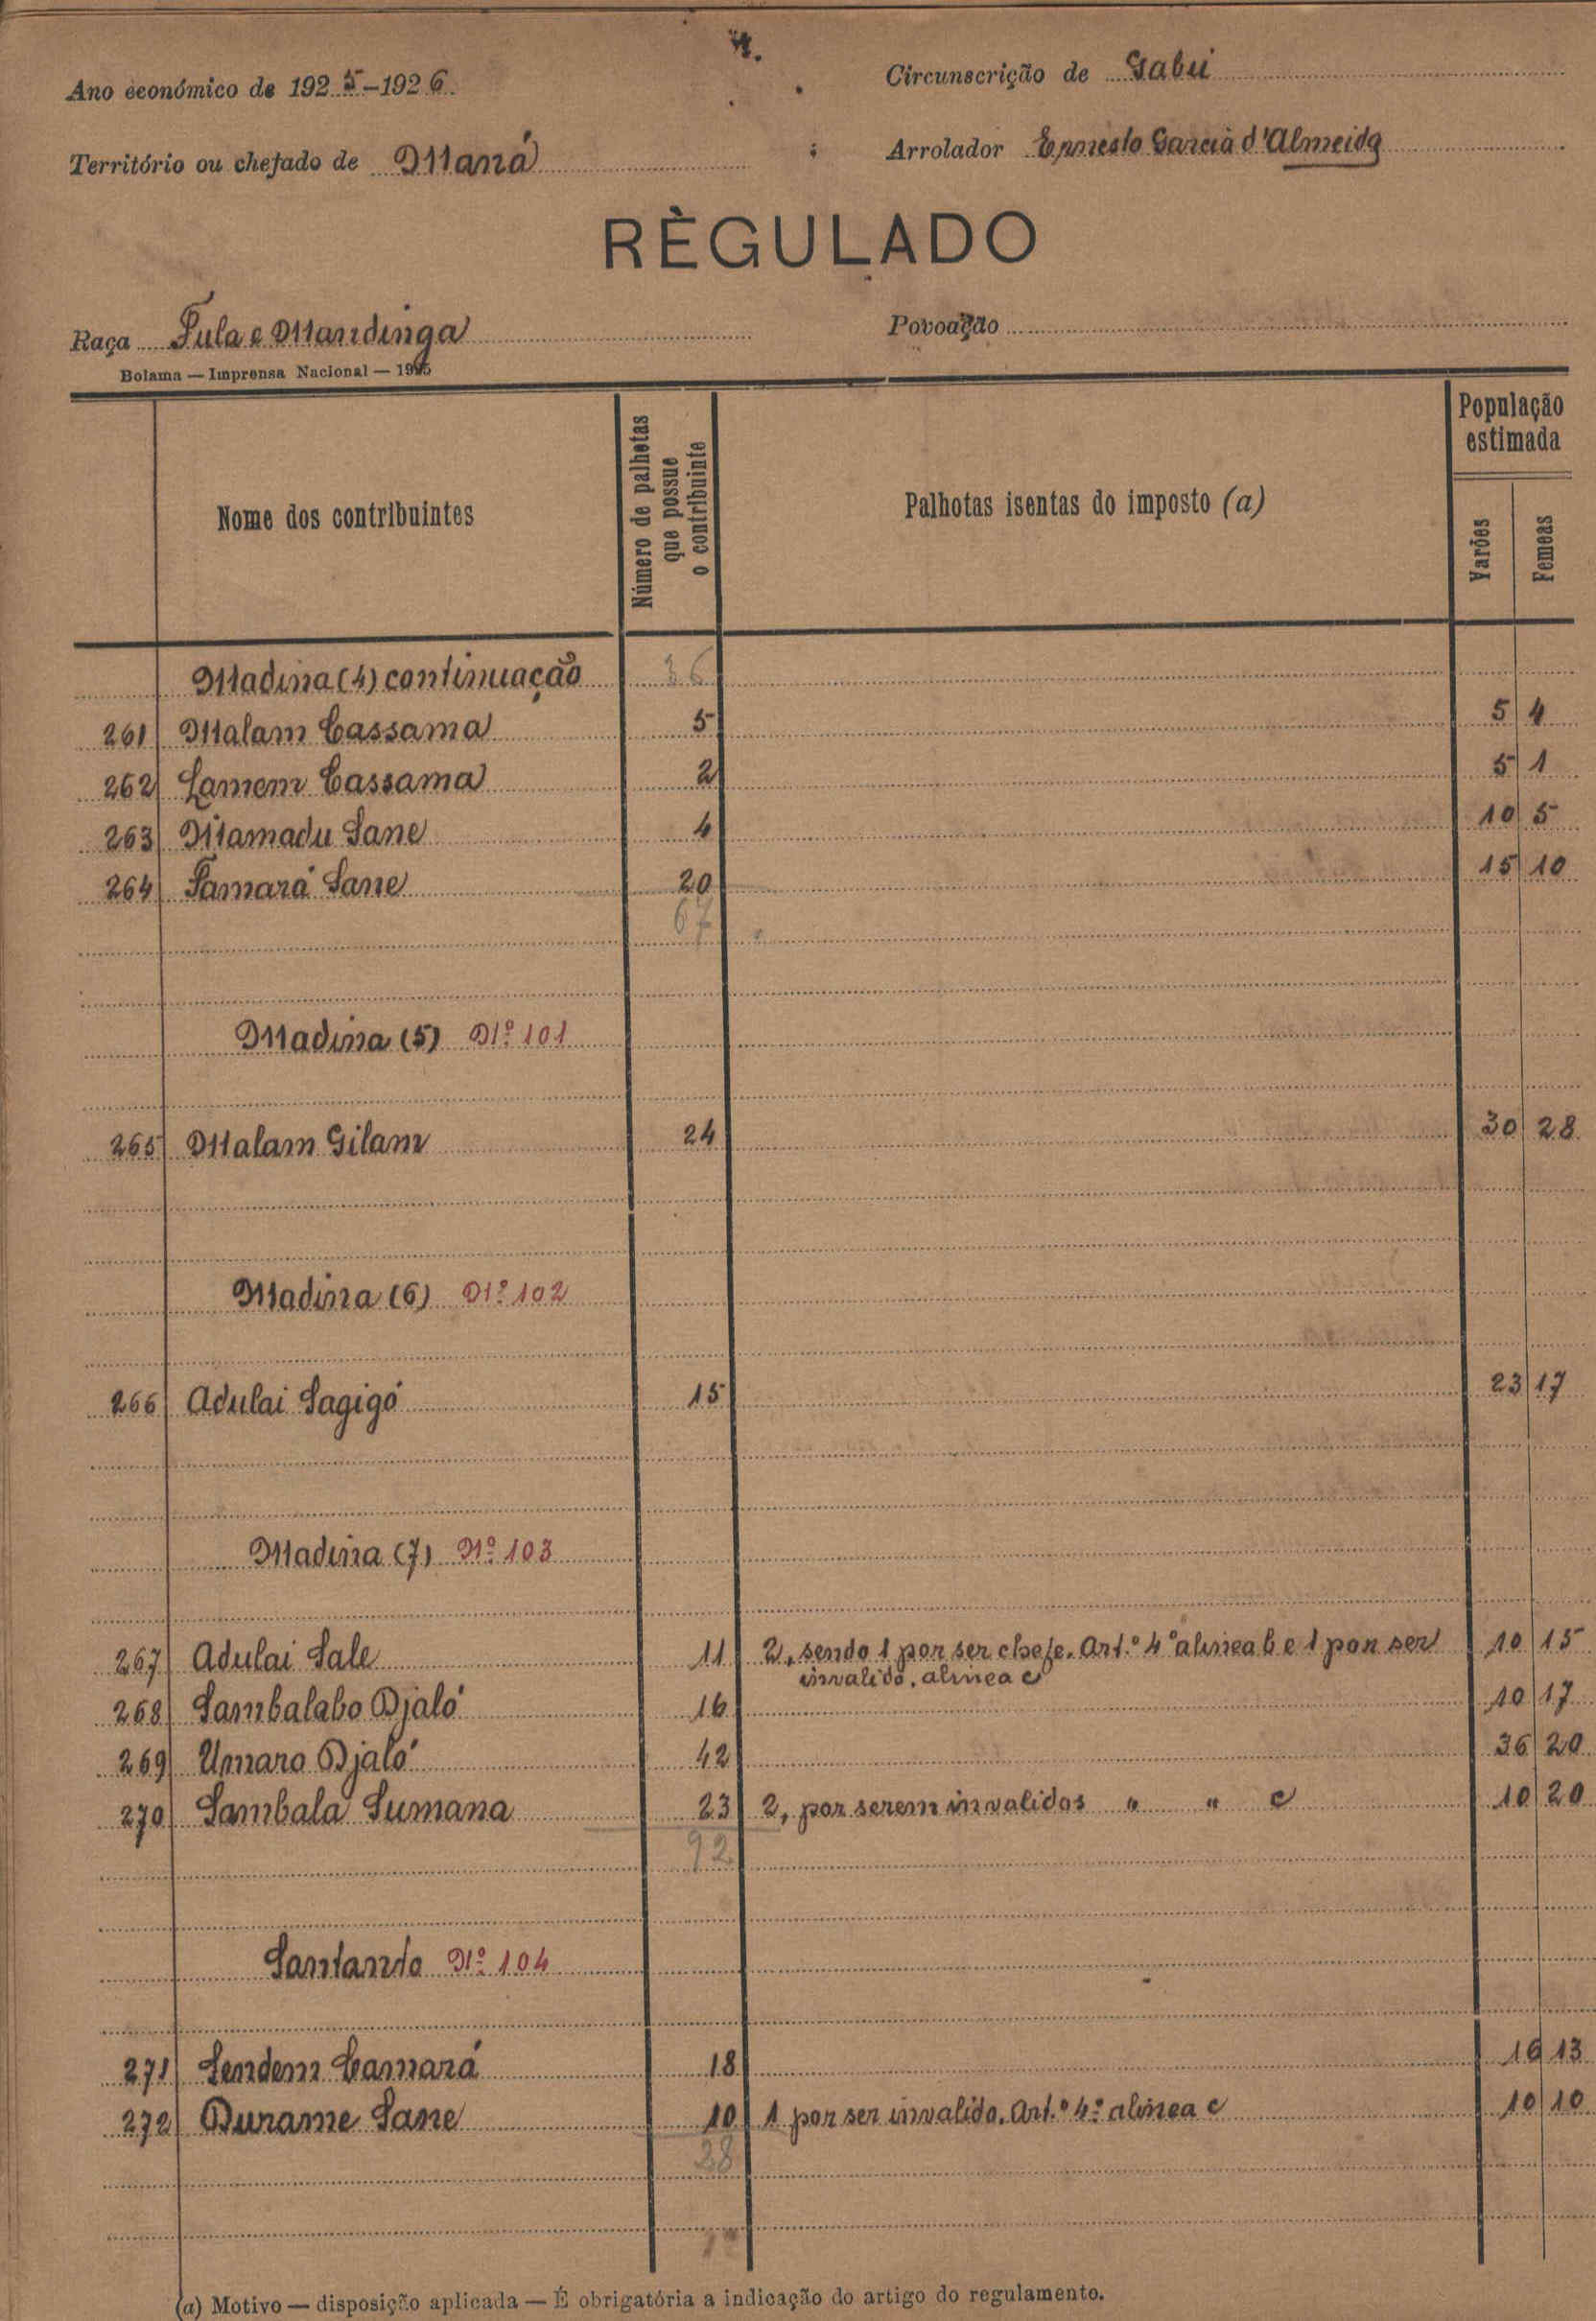 4.
Ano económico de 1925-1926
Circunscrição de Gabú
Território ou chefado de Maná
Arrolador Ernesto Garcia d'Almeida
RÈGULADO
Raça Fula e Mandinga
Povoação
Bolama — Imprensa Nacional — 1925
Nome dos contribuintes
Número de palhotas que possue o contribuinte
Palhotas isentas do imposto (a)
População estimada
Varões
Femeas
Madina (4) continuação 36
261 Malam Cassama 5 5 4
262 Lamem Cassama 2 5 1
263 Mamadu Sane 4 10 5
264 Famará Sane 20 15 10
67
Madina (5) Nº 101
265 Malam Gilam 24 30 28
Madina (6) Nº 102
266 Adulai Sagigó 15 23 17
Madina (7) Nº 103
267 Adulai Sale 11 2, sendo 1 por ser chefe. Art.º 4º alinea b e 1 por ser 10 15
invalido, alinea c
268 Sambalabo Djaló 16 10 17
269 Umaro Djaló 42 36 20
270 Sambala Sumana 23 2, por serem invalidos " " c 10 20
92
Santanto Nº 104
271 Sendem Camará 18 16 13
272 Durame Sane 10 1 por ser invalido. Art.º 4º alinea c 10 10
28
(a) Motivo — disposição aplicada — É obrigatória a indicação do artigo do regulamento.